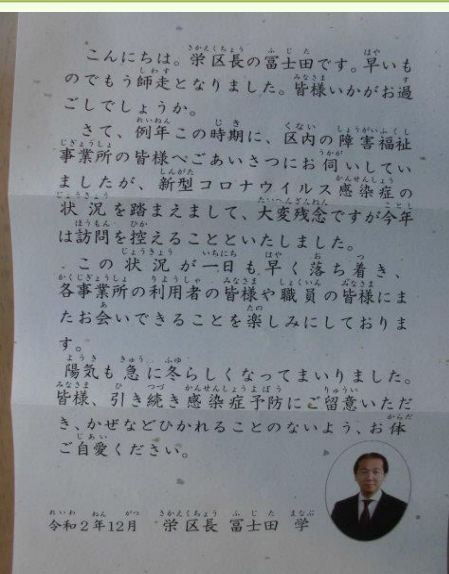 こんにちは。栄区長の冨士田です。早いも
のでもう師走となりました。皆様いかがお過
ごしでしょうか。
さて、例年この時期に、区内の障害福祉
事業所の皆様へごあいさつにお伺いしてい
ましたが、新型コロナウイルス感染症の
状況を踏まえまして、大変残念ですが今年
は訪問を控えることといたしました。
この状況が一日も早く落ち着き、
各事業所の利用者の皆様や職員の皆様にま
たお会いできることを楽しみにしておりま
す。
陽気も急に冬らしくなってまいりました。
皆様、引き続き感染症予防にご留意いただ
き、かぜなどひかれることのないよう、お体
ご自愛ください。
令和2年12月　栄区長　冨士田　学